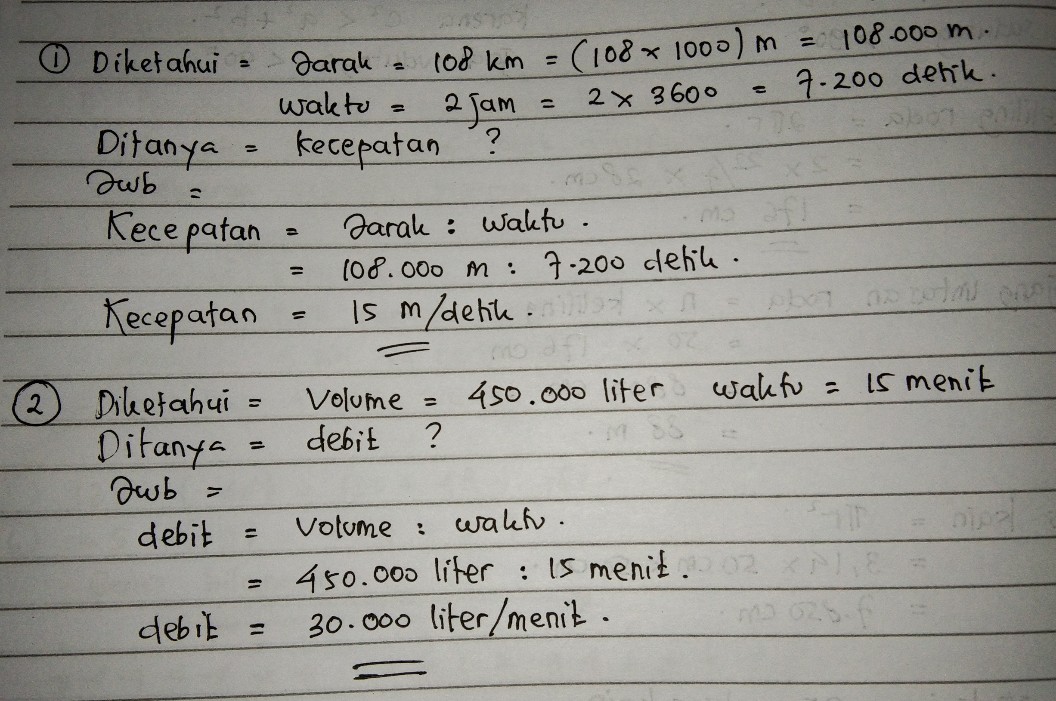 ① Diketahui = Jarak = 108 km = (108 x 1000) m = 108.000 m.
waktu = 2 jam = 2 x 3600 = 7.200 detik.
Ditanya = kecepatan ?
Jwb =
Kecepatan = Jarak : waktu.
= 108.000 m : 7.200 detik.
Kecepatan = 15 m/detik.
② Diketahui = Volume = 450.000 liter waktu = 15 menit
Ditanya = debit ?
Jwb =
debit = Volume : waktu.
= 450.000 liter : 15 menit.
debit = 30.000 liter/menit.